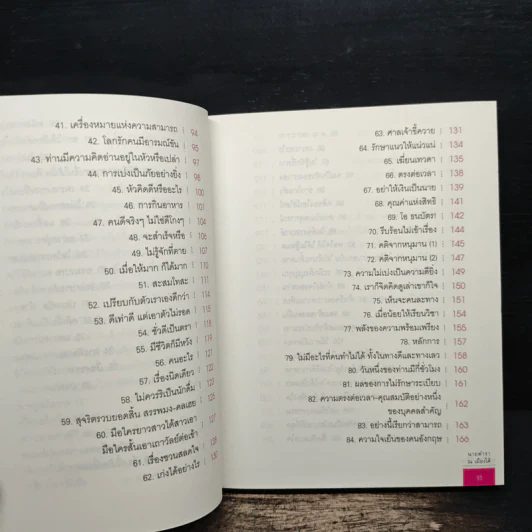 41. เครื่องหมายแห่งความสามารถ | 94
42. โลกรักคนมีอารมณ์ขัน | 95
43. ท่านมีความคิดอ่านอยู่ในหัวหรือเปล่า | 97
44. การเบ่งเป็นภัยอย่างยิ่ง | 98
45. หัวคิดดีหรืออะไร | 100
46. การกินอาหาร | 102
47. คนดีจริงๆ ไม่ใช่ดีโกงๆ | 104
48. จะสำเร็จหรือ | 106
49. ไม่รู้จักที่ตาย | 107
50. เมื่อให้มาก ก็ได้มาก | 110
51. สะสมไทละ | 111
52. เปรียบกับตัวเราเองดีกว่า | 114
53. ดีเท่าดี แต่เอาตัวไม่รอด |
54. ชั่วดีเป็นตรา |
55. มีชีวิตก็มีหวัง |
56. คนอะไร |
57. เรื่องนิดเดียว |
58. ไม่ควรริเป็นนักดื่ม |
59. สุจริตรวบยอดสิ้น สรรพมงคลเฮย |
60. มือไครยาวสาวได้สาวเอา
มือไครสั้นเอาเถาวัลย์ต่อเข้า |
61. เรื่องชวนสลดใจ |
62. เก่งได้อย่างไร | 130
63. ศาลเจ้าขี้ควาย | 131
64. รักษาแนวให้แน่วแน่ | 134
65. เฆี่ยนเทวดา | 135
66. ตรงต่อเวลา | 136
67. อย่าให้เงินเป็นนาย | 139
68. คุณค่าแห่งสิทธิ | 141
69. โอ ธนบัตร! | 142
70. รีบร้อนไม่เข้าเรื่อง | 144
71. คติจากหนุมาน (1) | 145
72. คติจากหนุมาน (2) | 147
73. ความไม่เบ่งเป็นความดียิ่ง | 149
74. เราก็จิตคิดดูเล่าเขาก็ใจ | 151
75. เห็นจะคนละทาง | 152
76. เมื่อน้อยให้เรียนวิชา | 154
77. พลังของความพร้อมเพรียง | 155
78. หลักการ | 157
79. ไม่มีอะไรที่คนทำไม่ได้ ทั้งในทางดีและทางเลว | 158
80. วันหนึ่งของท่านมีกี่ชั่วโมง | 160
81. ผลของการไม่รักษาระเบียบ | 161
82. ความตรงต่อเวลา-คุณสมบัติอย่างหนึ่ง
ของบุคคลสำคัญ | 162
83. อย่างนี้เรียกว่าสามารถ | 163
84. ความใจเย็นของคนอังกฤษ | 166
นายตำรา
ณ เมืองใต้